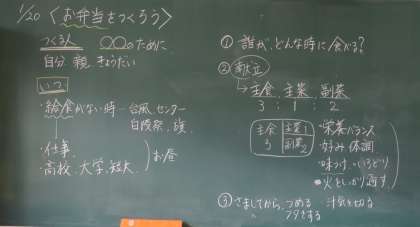 1/20 〈お弁当をつくろう〉
つくる人 〇〇のために
自分 親 きょうだい
いつ
・給食がない時 - 台風、センター
白陵祭、旗
・仕事
・高校、大学、短大 お昼
① 誰が、どんな時に食べる?
② 献立
→主食 主菜 副菜
3 : 1 : 2
主食 3 主菜1 副菜2
・栄養バランス
・好み 体調
・味つけ・いろどり
・火をしっかり通す
③ さましてから、つめる 汁気を切る
フタをする